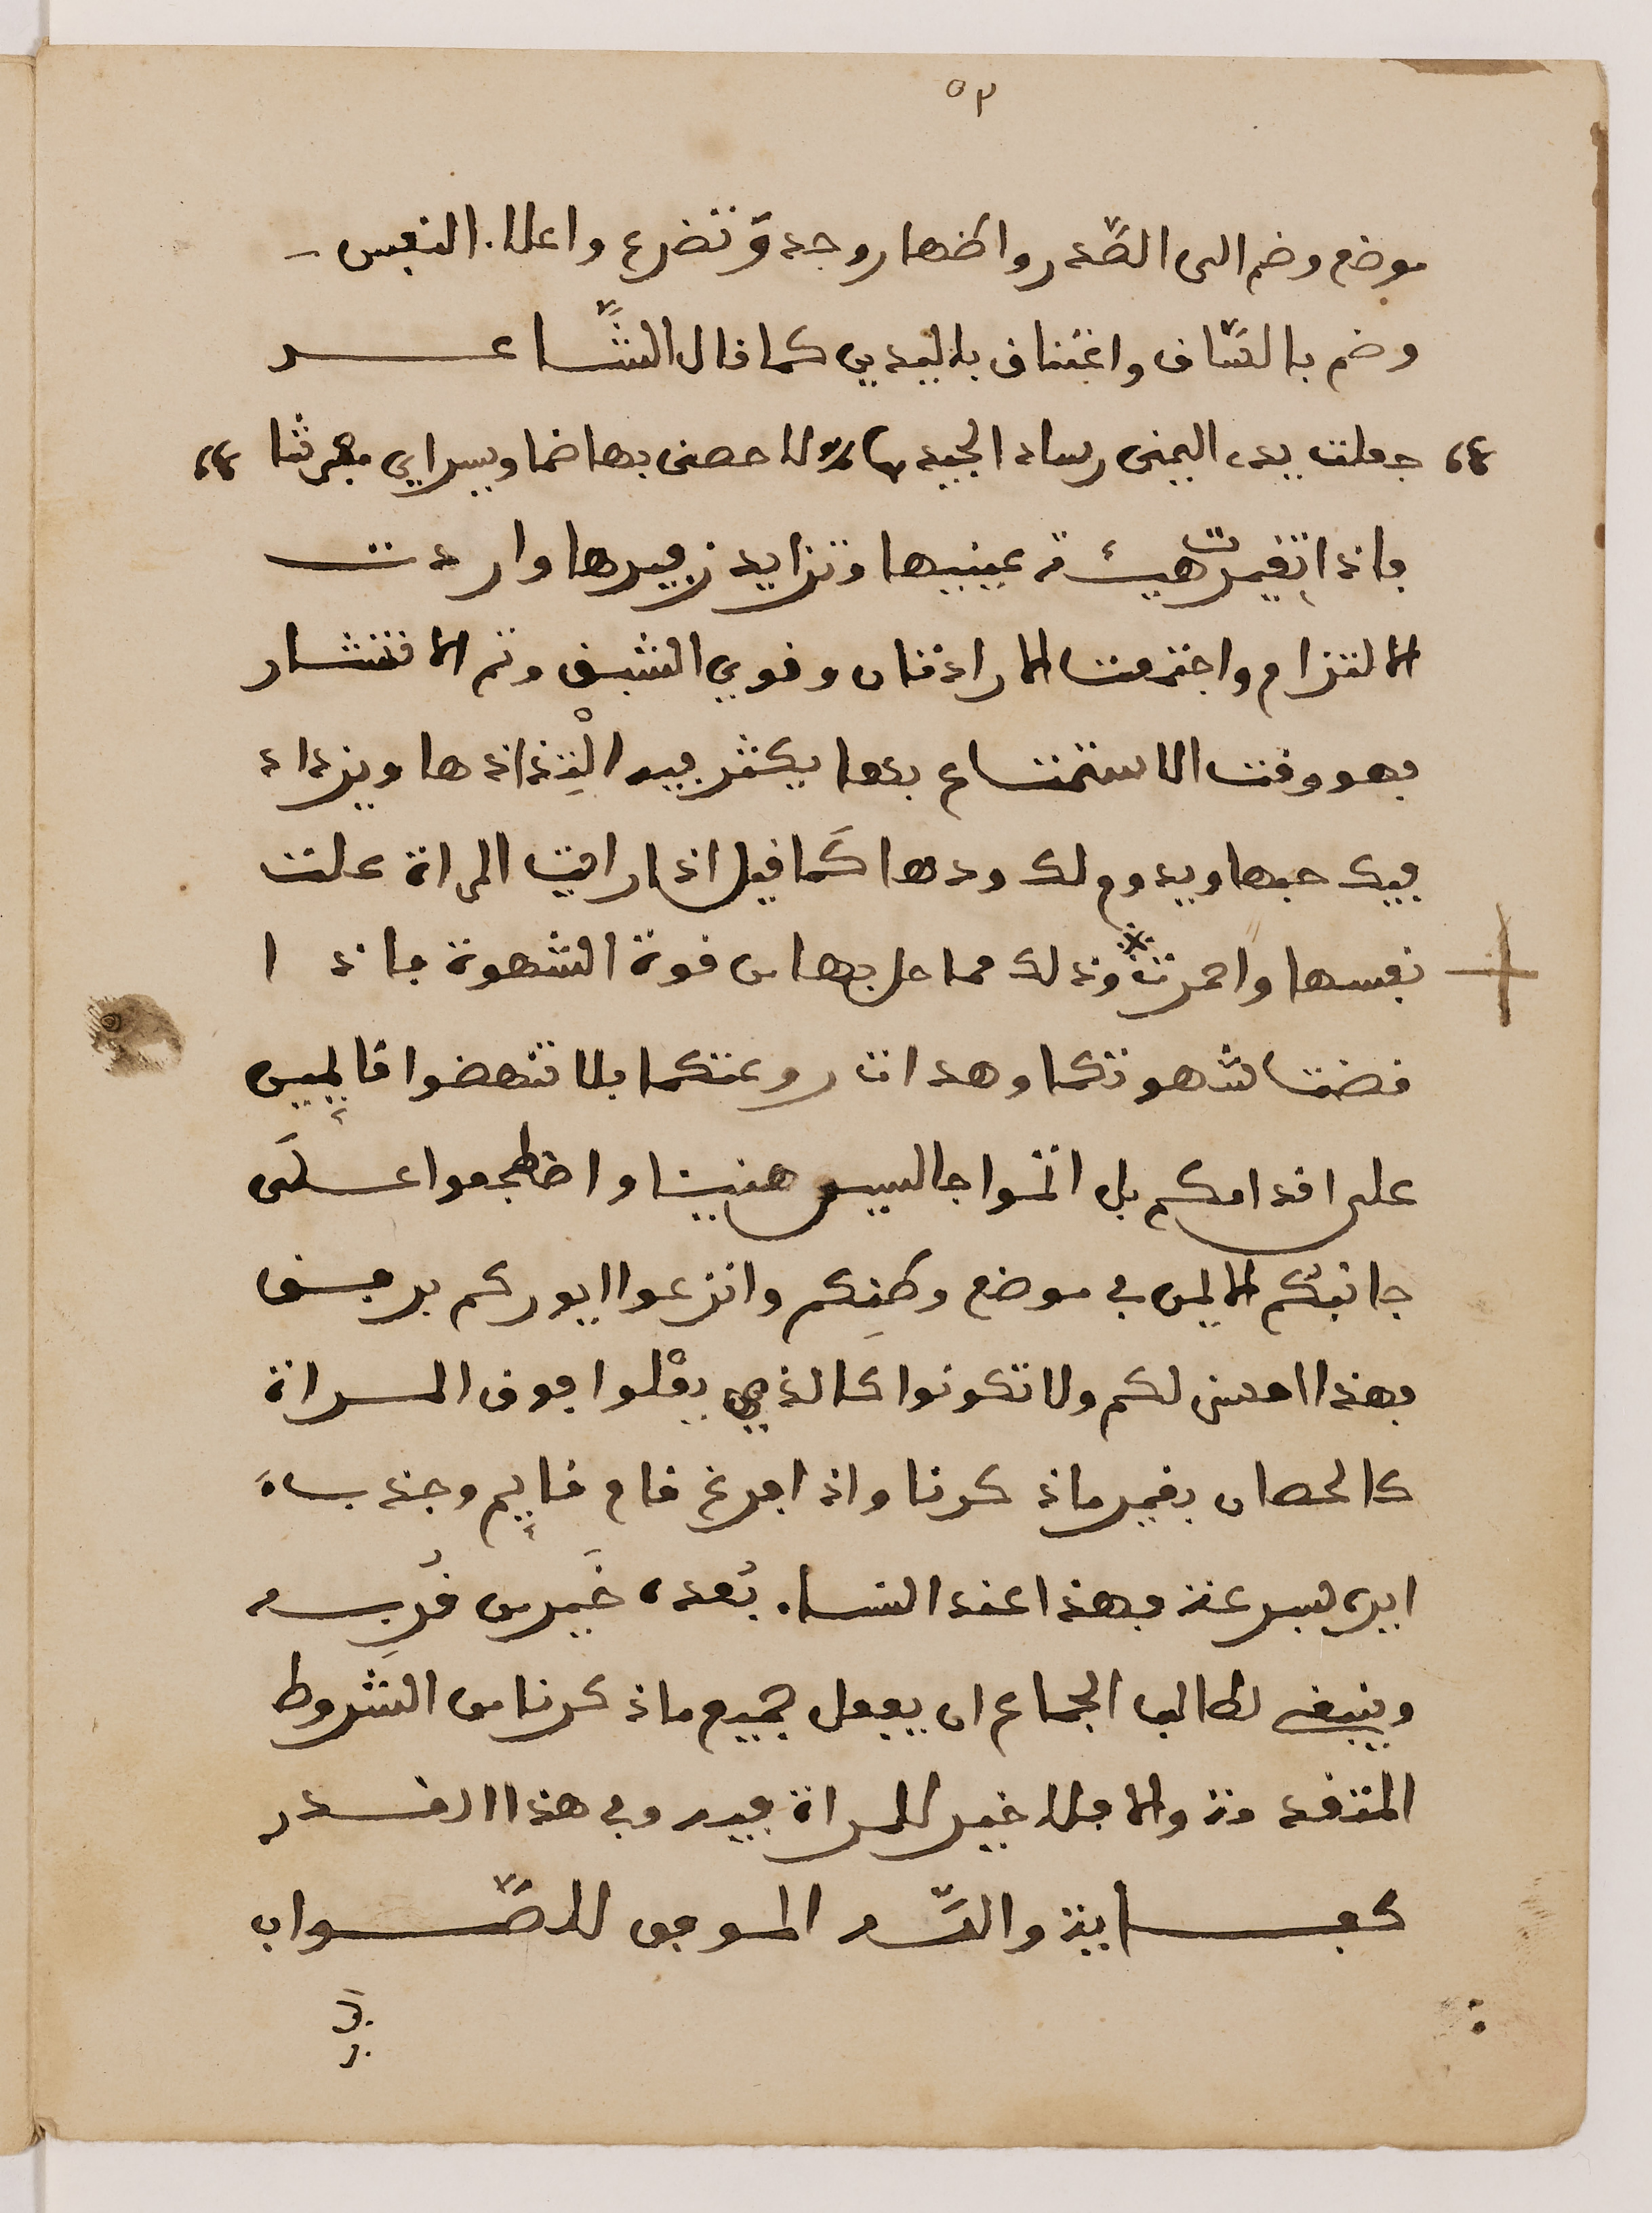 ٥٣
موضع وضم الى الصّدر واظهار وجد وتضرع واعلاء النفس
وضم بالسّاق واعتناق باليدين كما قال الشّاعر
جعلت يدي اليمنى وساد الجيدها لاحصنى بها ضما ويسراي مفرشا
فاذا تغيرت هيئة عينيها وتزايد زفيرها وارادت
الالتزام واجتمعت الارادتان وقوي الشبق وتم الانتشار
فهو وقت الاستمتاع بها يكثر فيه الْتِذاذها ويزداد
فيك حبها ويدوم لك ودها كَما قيل اذا رايت المراة علت
نفسها واحمرت وذلك مما حل بها من قوة الشهوة فاذا
قضت شهوتكما وهدات روعتكما فلا تنهضوا قايمين
على اقدامكم بل اتموا جالسين هنيئا واضطجعوا علَى
جانبكم الايمن في موضع وطئِكم وانزعوا ايوركم برفق
فهذا احسن لكم ولا تكونوا كالذي يعْلوا فوق المراة
كالحصان بغير ما ذكرنا واذا فرغ قام قايم وجذب
ايره بسرعة فهذا عند النساء بُعده خَير من قُربِه
وينبغي لطالب الجماع ان يفعل جميع ما ذكرنا من الشروط
المتقدمة والا فلا خير للمراة فيه وفي هذا القدر
كفاية واللّه الموفق للصّواب